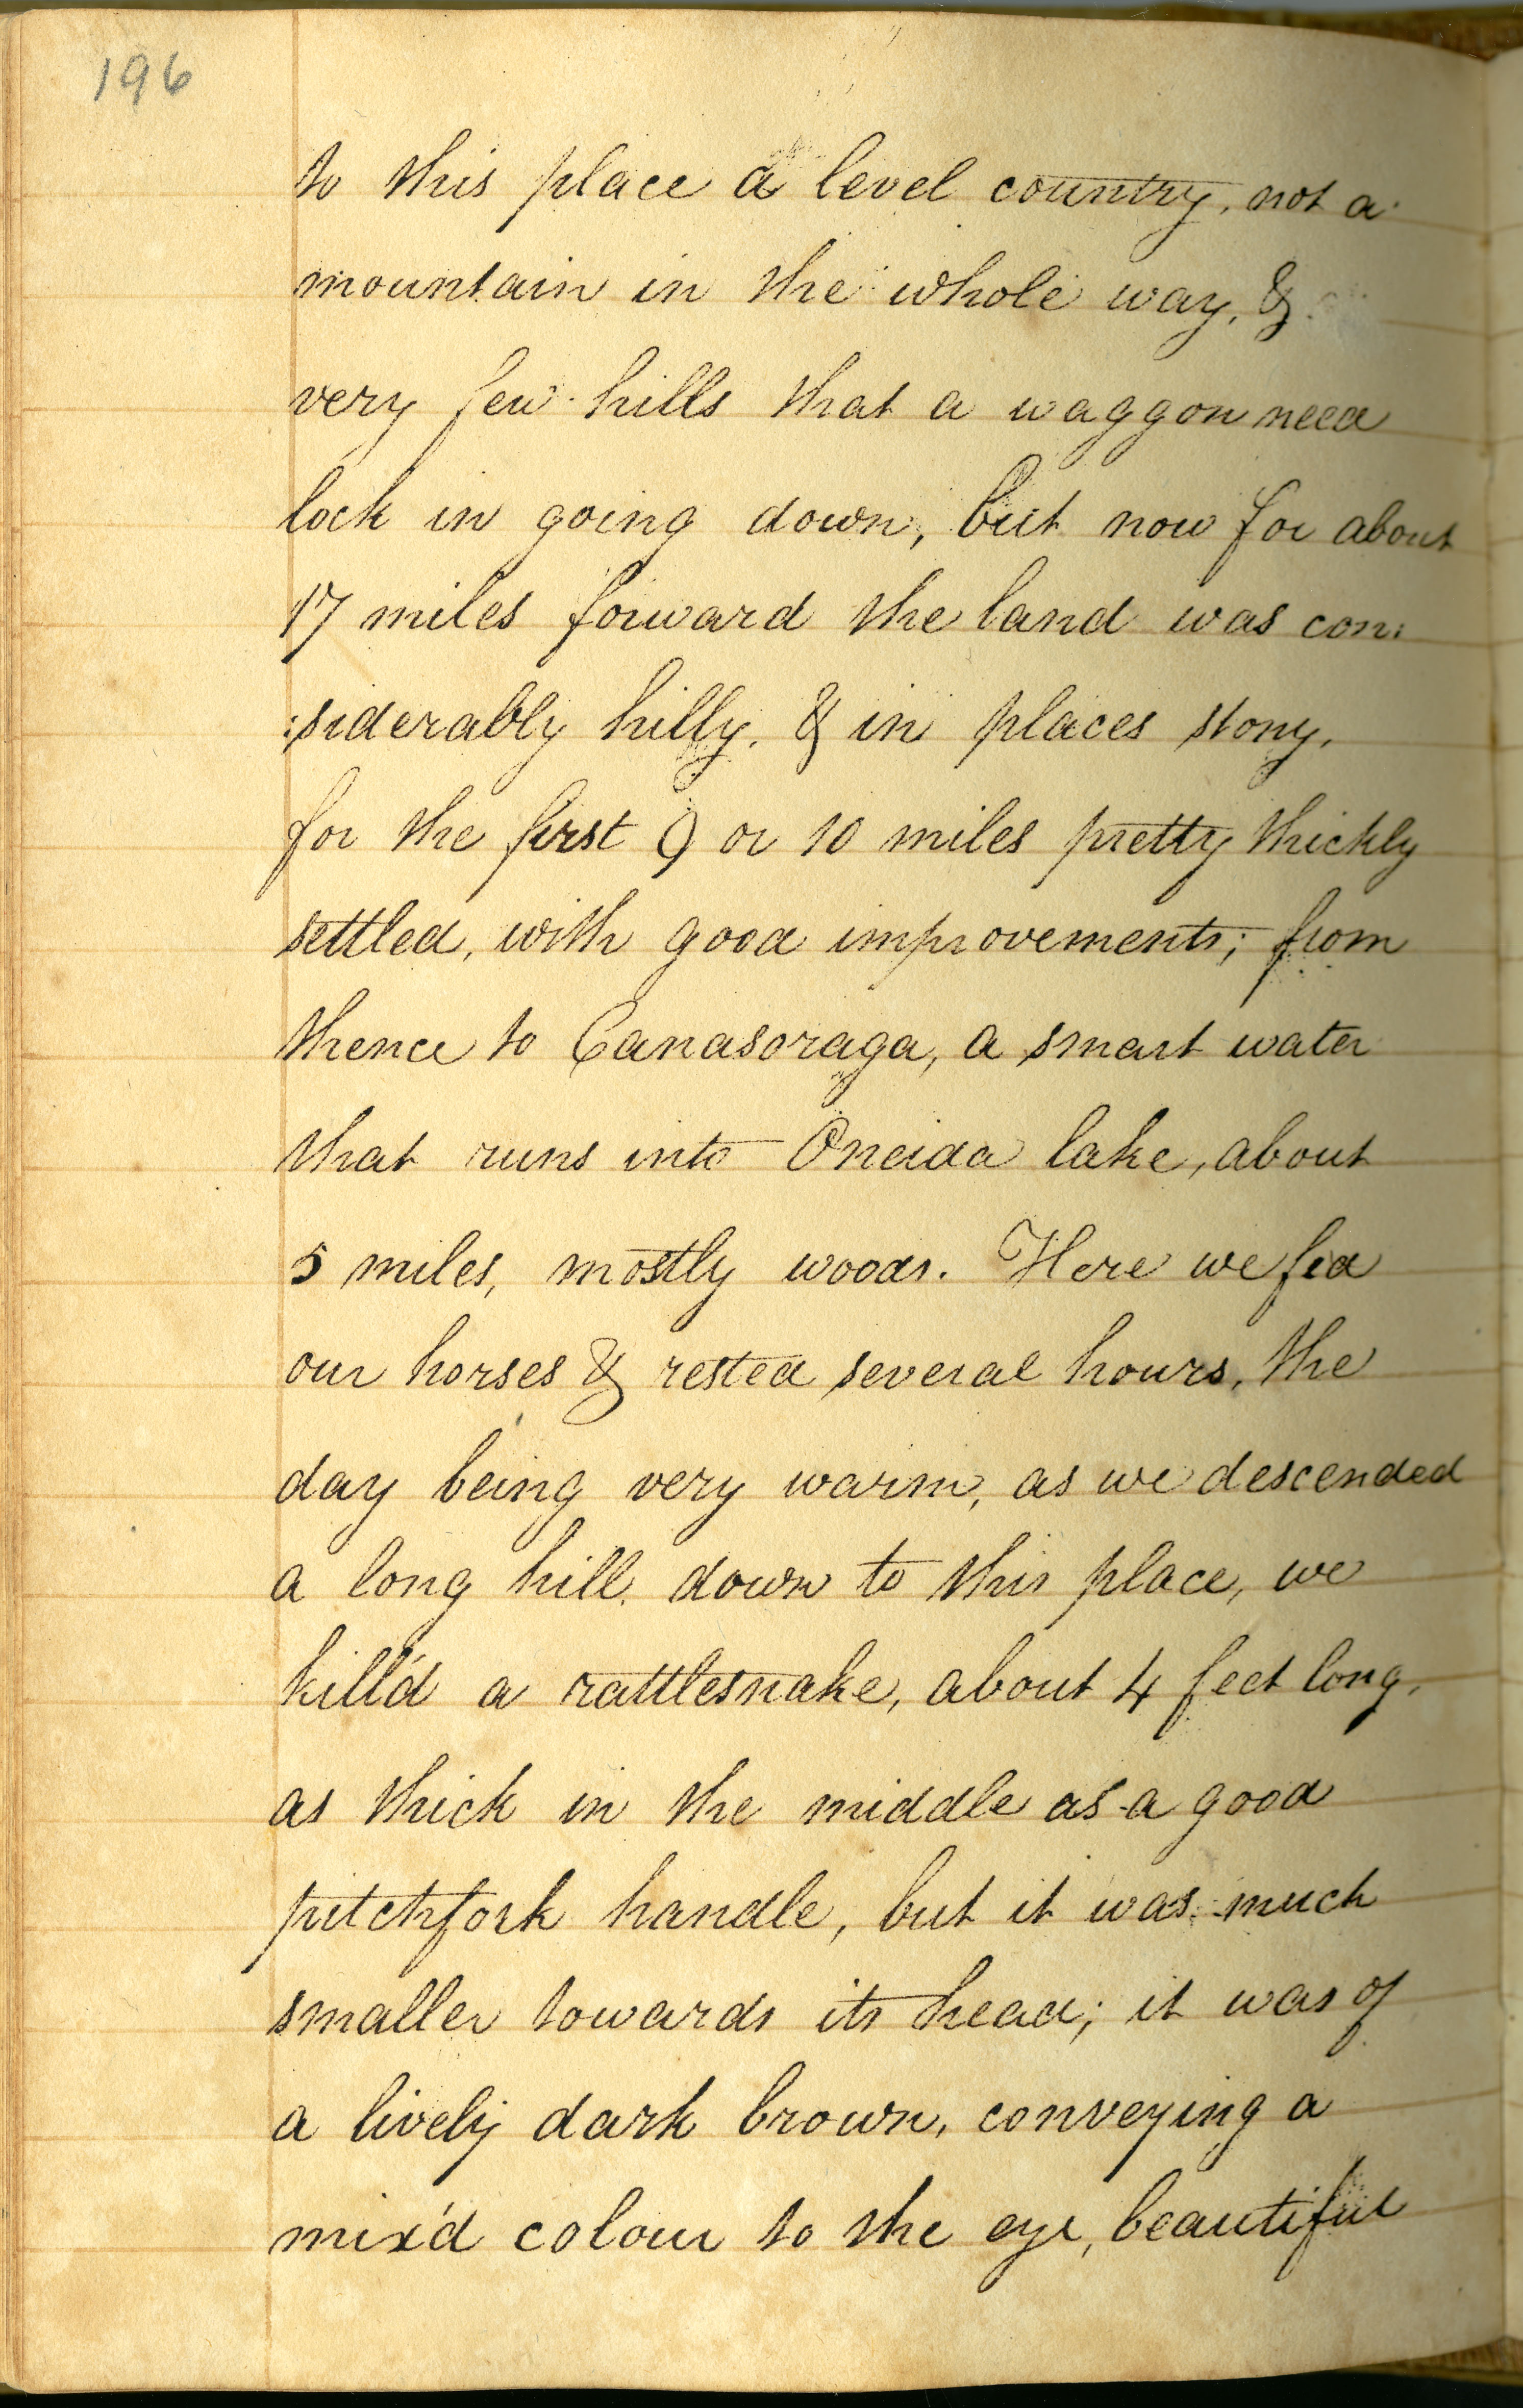 196
to this place a level country, not a
mountain in the whole way, &
very few hills that a waggon need
lock in going down, but now for about
17 miles forward the land was con:
:siderably hilly, & in places stony,
for the first 9 or 10 miles pretty thickly
settled, with good improvements; from
thence to Canasoraga, a smart water
that runs into Oneida lake, about
5 miles, mostly woods. Here we fed
our horses & rested several hours, the
day being very warm, as we descended
a long hill down to this place, we
kill'd a rattlesnake, about 4 feet long,
as thick in the middle as a good
pitchfork handle, but it was much
smaller towards its head; it was of
a lively dark brown, conveying a
mix'd colour to the eye, beautiful